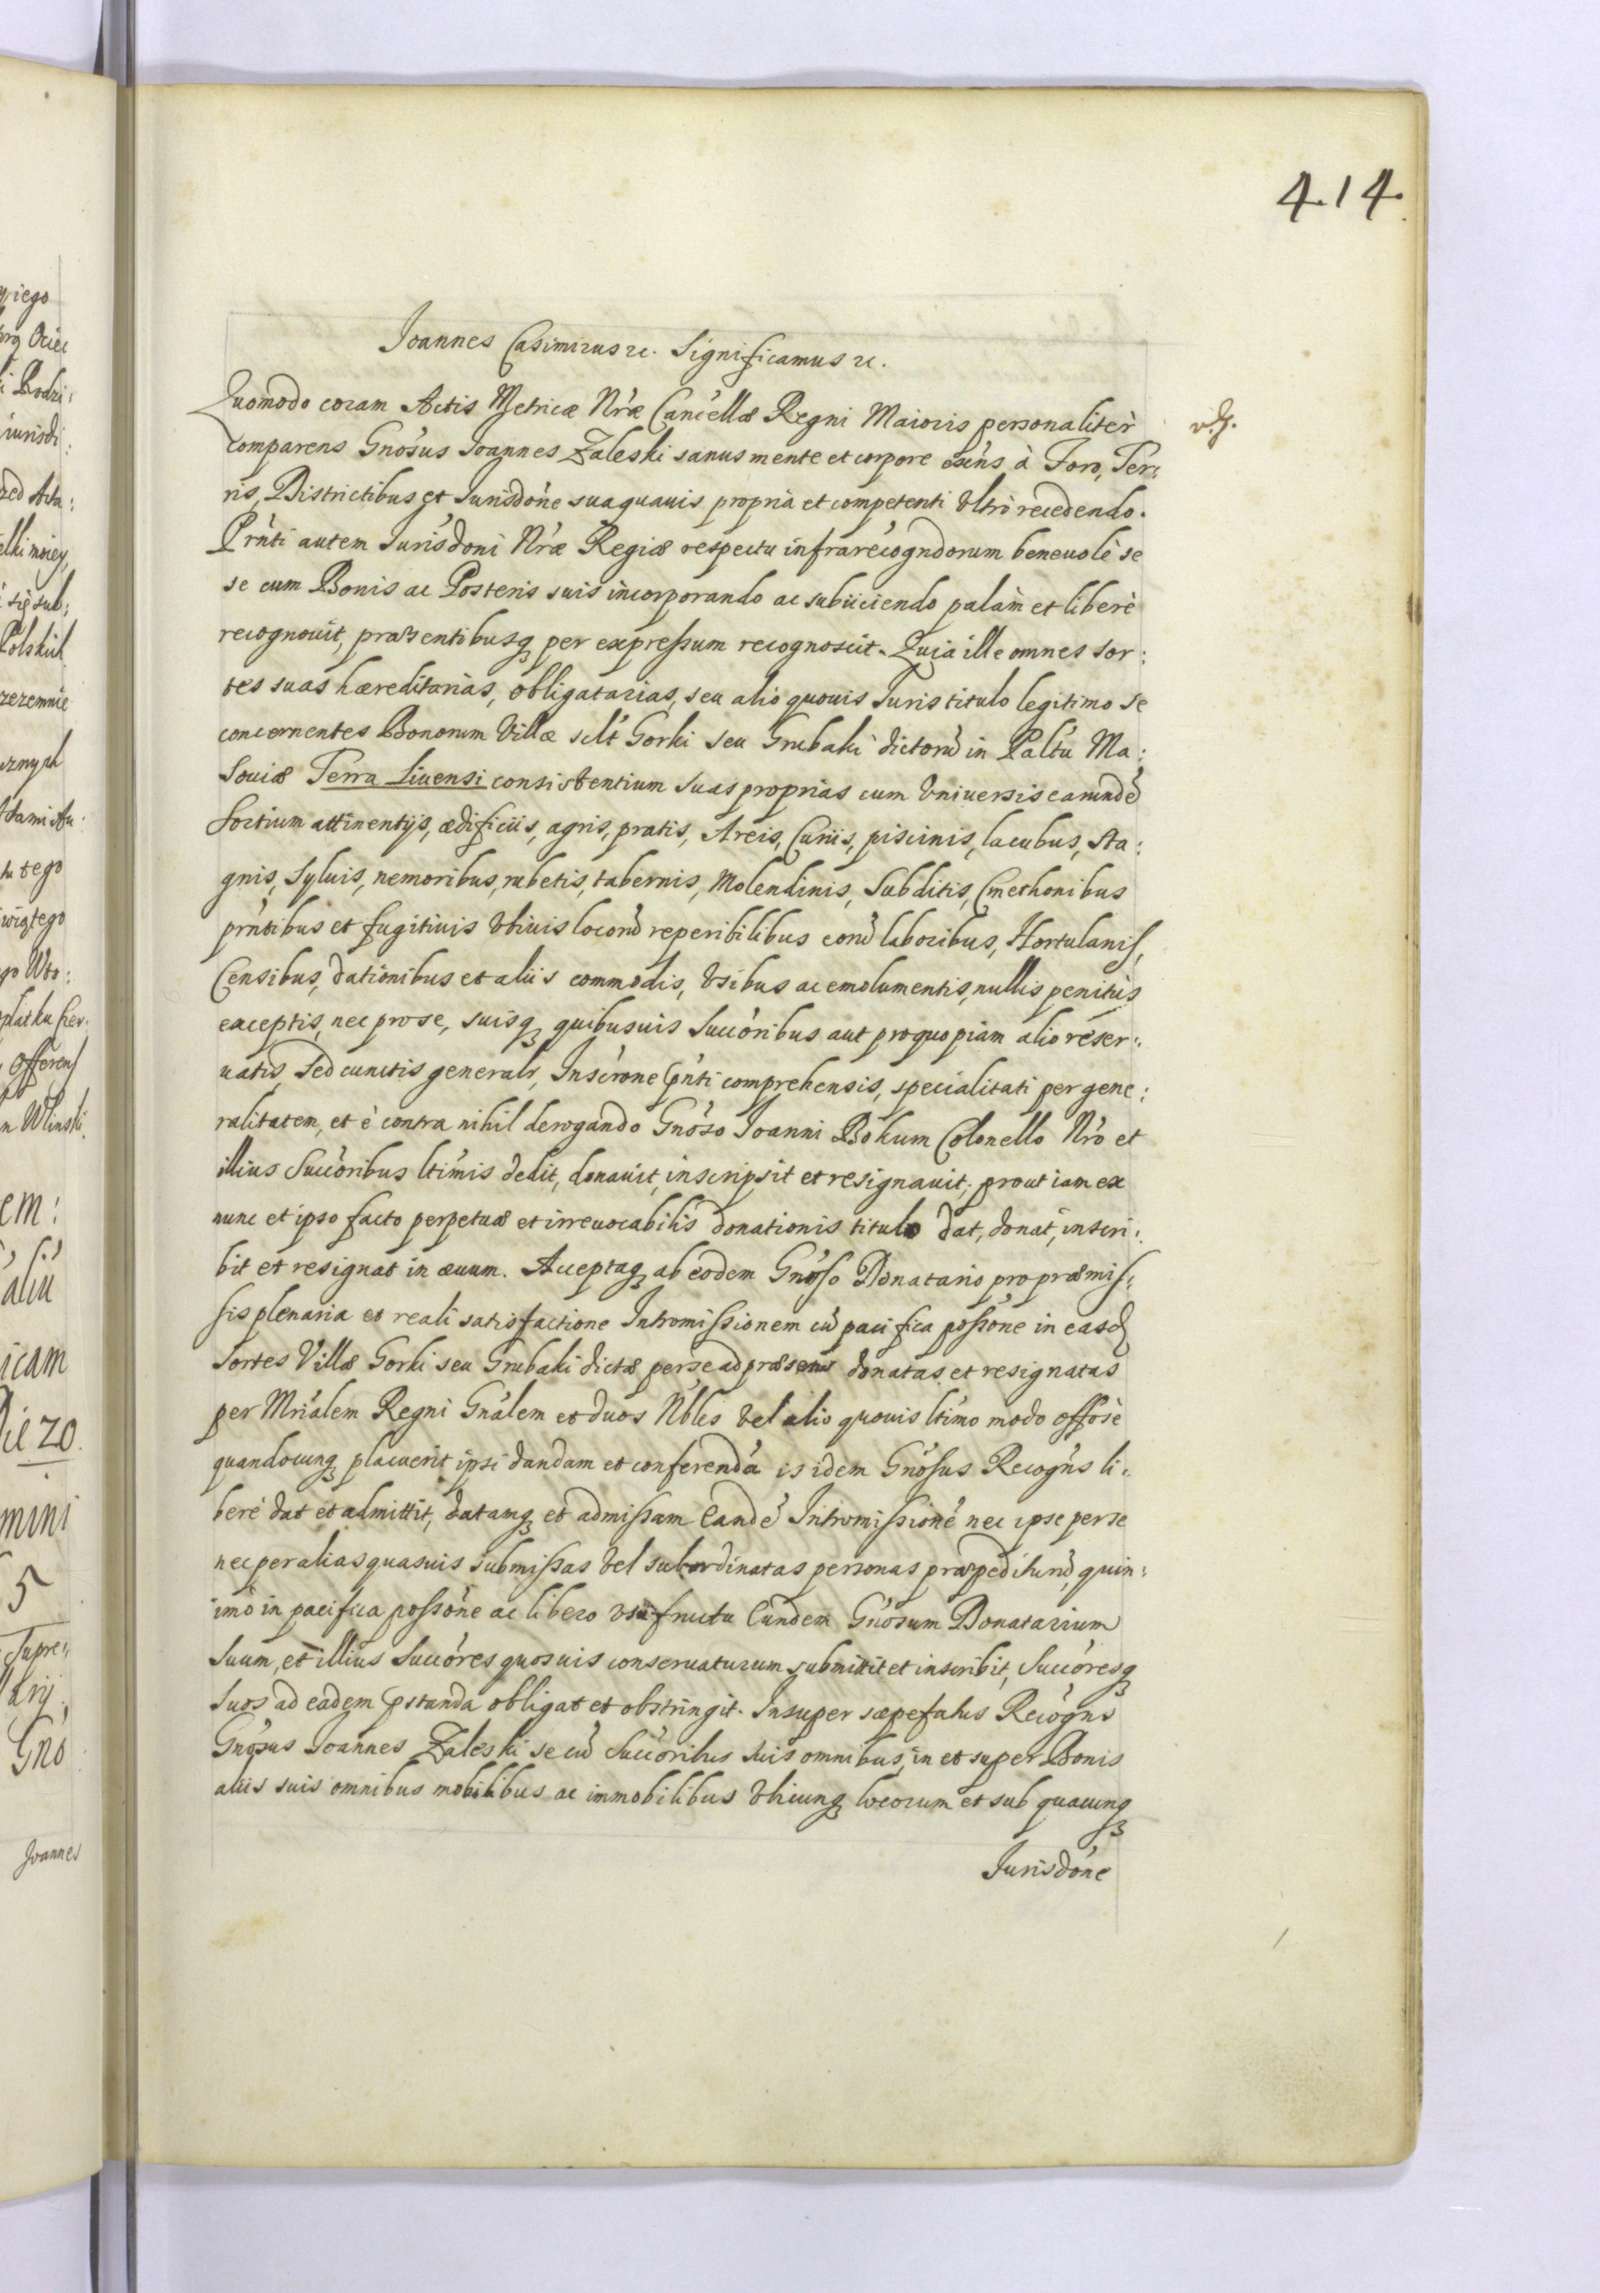 414.
Joannes Casimirus etc. Significamus etc.
Quomodo coram Actis Metricæ Nræ Cancellæ Regni Maioris personalitèr
comparens Gnosus Joannes Zaleski sanus mente et corpore exns à Foro, Ter:
ris, Districtibus et Jurisdone sua quavis propria et competenti Vltrò recedendo.
Prnti autem Jurisdoni Nræ Regiæ respectu infrarecogndorum beneuolè se
se cum Bonis ac Posteris suis incorporando ac subiiciendo palàm et liberè
recognouit, præsentibusq per expressum recognoscit. Quia ille omnes sor:
tes suas hæreditarias, obligatarias, seu alio quouis Juris titulo legitimo se
concernentes Bonorum Villæ sclt Gorki seu Grubaki dictorũ in Paltu Ma:
souiæ Terra Liuensi consistentium suas proprias cum Vniuersis earundẽ
sortium attinentijs, ædificiis, agris, pratis, Areis, Curiis, piscinis, lacubus, sta:
gnis, syluis, nemoribus, rubetis, tabernis, Molendinis, Subditis, Cmethonibus
prntibus et fugitiuis Vbiuis locorũ reperibilibus eorũ laboribus, Hortulanis,
Censibus, dationibus et aliis commodis, Vsibus ac emolumentis, nullis penitùs
exceptis, nec pro se, suisq quibusuis Succoribus aut pro quopiam alio reser:
uatis, sed cunctis generalr, Inscrone Pnti comprehensis, specialitati per gene:
ralitatem, et è contra nihil derogando Gnoso Joanni Bokum Colonello Nro et
illius Succoribus ltimis dedit, donauit, inscripsit et resignauit, prout iam ex
nunc et ipso facto perpetuæ et irreuocabilis donationis titulo dat, donat, inscri:
bit et resignat in æuum. Acceptaq ab eodem Gnoso Donatario pro præmis:
sis plenaria et reali satisfactione Intromissionem cũ pacifica possone in easd
sortes Villæ Gorki seu Grubaki dictæ per se ad præsens donatas et resignatas
per Mrialem Regni Gnalem et duos Nbles Vel alio quouis ltimo modo offosè
quandocunq placuerit ipsi dandam et conferendã is idem Gnosus Recogns li:
berè dat et admittit, datamq et admissam Eandẽ Intromissionẽ nec ipse per se
nec per alias quasuis submissas Vel subordinatas personas præpediturũ, quin:
imò in pacifica possone ac libero vsufructu Eundem Gnosum Donatarium
suum, et illius Succores quosuis conseruaturum submittit et inscribit, Succoresq
suos ad eadem Pstanda obligat et obstringit. Insuper sæpefatus Recogns
Gnosus Joannes Zaleski se cũ Succoribus suis omnibus, in et super Bonis
aliis suis omnibus mobilibus ac immobilibus Vbicunq locorum et sub quacunq
Jurisdone